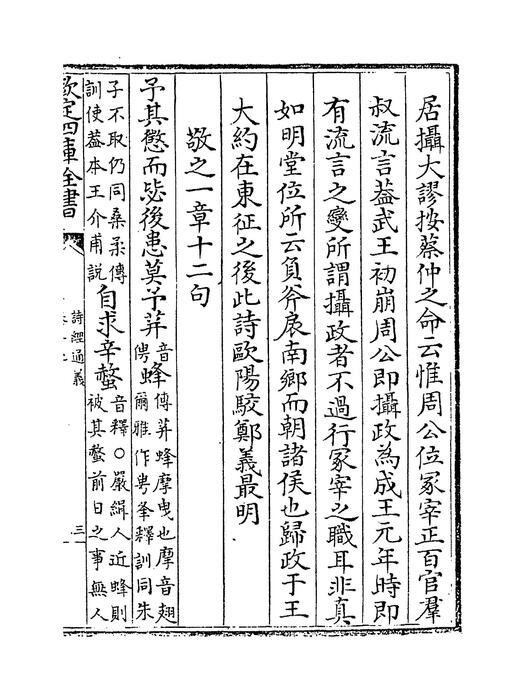 居攝大謬按蔡仲之命云惟周公位冢宰正百官羣
叔流言葢武王初崩周公即攝政為成王元年時即
有流言之變所謂攝政者不過行冢宰之職耳非真
如明堂位所云負斧扆南鄉而朝諸侯也歸政于王
大約在東征之後此詩歐陽駁鄭義最明
敬之一章十二句
予其懲而毖後患莫予荓音俜蜂傳荓蜂摩曳也摩音翅爾雅作甹夆釋訓同朱
子不取仍同桑柔傳訓使葢本王介甫説自求辛螫音釋○嚴緝人近蜂則被其螫前日之事無人
欽定四庫全書
詩經通義
三